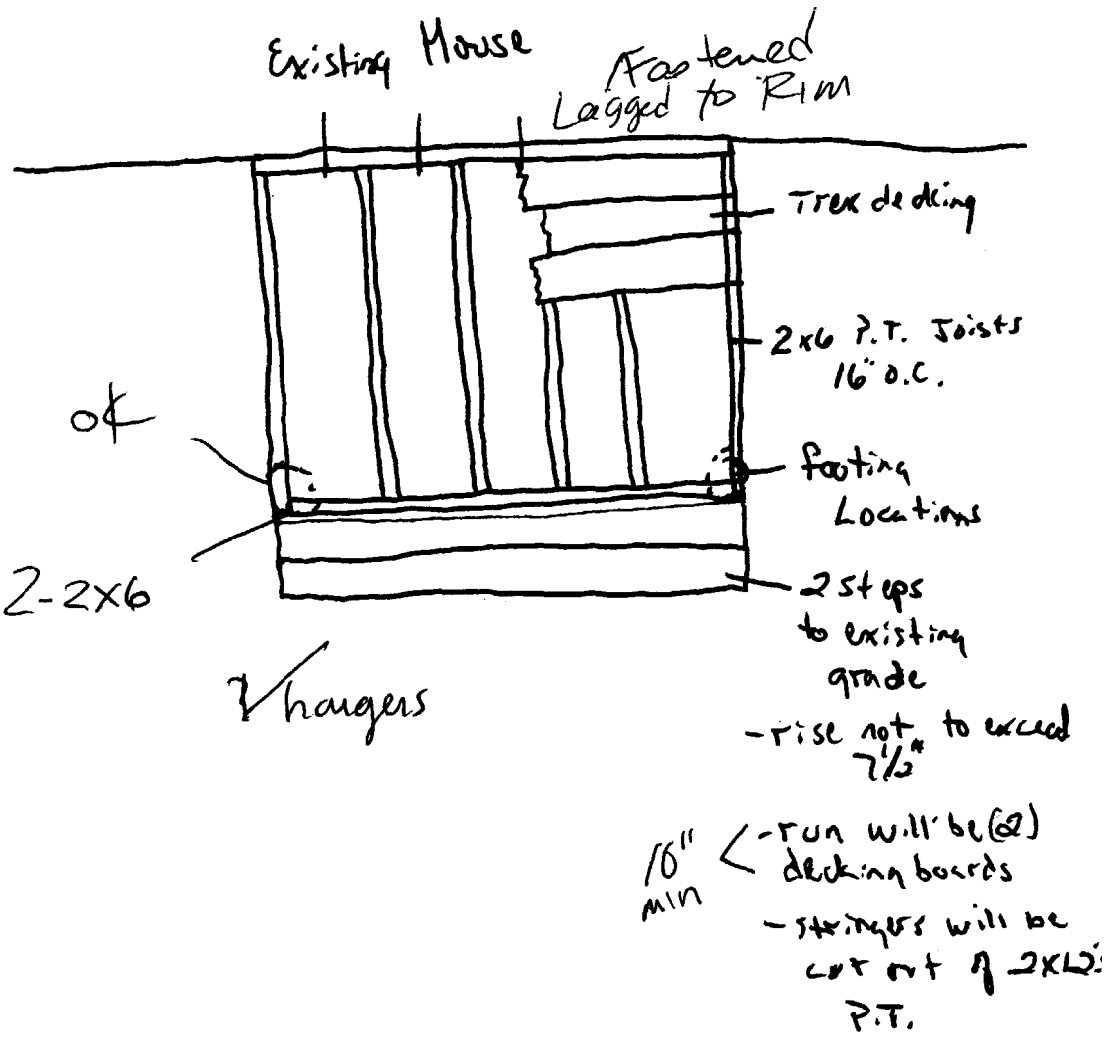 Existing House
Fastened
Lagged to Rim
Trex decking
2x6 P.T. Joists
16" O.C.
OK
footing
Locations
2-2x6
2 steps
to existing
grade
✓ hangers
- rise not to exceed
7 1/2"
10"
min
- run will be (2)
decking boards
- stringers will be
cut out of 2x12's
P.T.